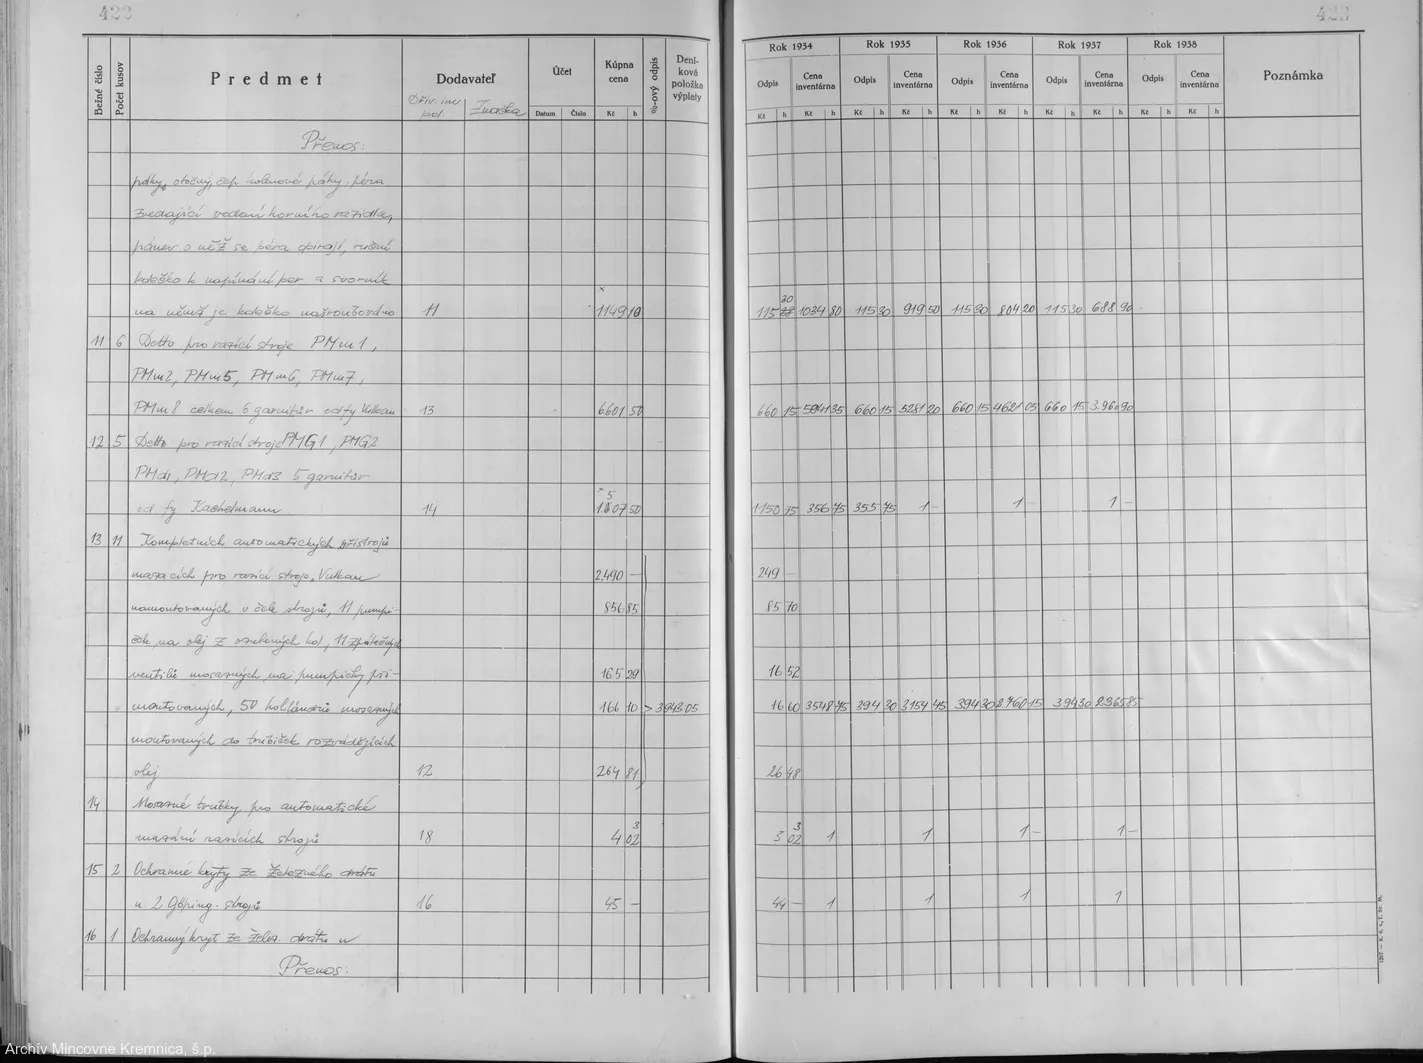 422
Bežné číslo
Počet kusov
Predmet
Dodavateľ
Dřív. inv. pol.
Značka
Účet
Datum Číslo
Kúpna cena
Kč h
%-ový odpis
Dení-ková položka výplaty
Přenos:
páky, otočný čep kolenové páky, péra
zvedající vedení horního razidla,
pánev o něž se péra opírají, ruční
kolečko k napínání per a svorník
na němž je kolečko našroubováno 11 1149 10
11 6 Detto pro razící stroje PMm1,
PMm2, PMm5, PMm6, PMm7,
PMm8 celkem 6 garnitur od fy Vulkan 13 6601 50
12 5 Detto pro razící stroje PMG1, PMG2
PMd1, PMd2, PMd3 5 garnitur
od fy Kachelmann 14 1507 50
13 11 Kompletních automatických přístrojů
mazacích pro razící stroje "Vulkan 2.490 —
namontovaných v čele strojů, 11 pumpi- 856 85
ček na olej z ozubených kol, 11 zpátečných
ventilů mosazných na pumpičky při- 165 29
montovaných, 50 hollándrů mosazných 166 10 > 3943.05
montovaných do trubiček rozvádějících
olej 12 264 81
14 Mosazné trubky pro automatické
mazání razících strojů 18 4 02 3
15 2 Ochranné kryty ze železného drátu
u 2 Göping. strojů 16 45 —
16 1 Ochranný kryt ze želez. drátu u
Přenos:
422
Rok 1934 Rok 1935 Rok 1936 Rok 1937 Rok 1938
Poznámka
Odpis Cena inventárna Odpis Cena inventárna Odpis Cena inventárna Odpis Cena inventárna Odpis Cena inventárna
Kč h Kč h Kč h Kč h Kč h Kč h Kč h Kč h Kč h Kč h
30
115 1034 80 115 30 919 50 115 30 804 20 115 30 688 90
660 15 5941 35 660 15 5281 20 660 15 4621 05 660 15 3.960 90
1150 75 356 75 355 75 1 — 1 — 1 —
249 —
85 70
16 52
16 60 3548 75 394 30 3154 45 394 30 2760 15 394 30 2365 85
26 48
3
3 02 1 1 1 — 1 —
44 — 1 1 1 1
Archív Mincovne Kremnica, š.p.